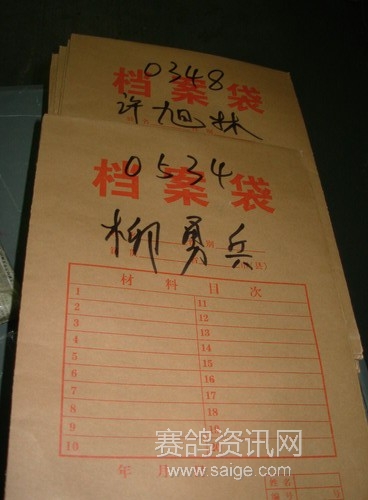 0348
档案袋
许旭林
0534
档案袋
柳勇兵
材料目次
1 11
2 12
3 13
4 14
5 15
6 16
7 17
8 18
9 19
10
年 月
姓名
赛鸽资讯网
www.saige.com